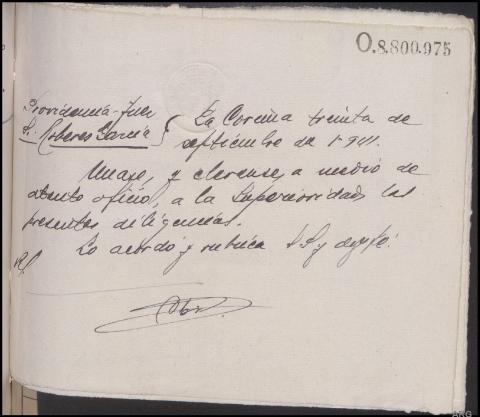 O.8.800.975
Providencia-Juez
Sr. Roberes García
La Coruña treinta de
septiembre de 1.941.
Unase, y elevense, a medio de
atento oficio, a la Superioridad las
presentes diligencias.
Lo acordó y rubrica S Sª y doy fe.
ARG